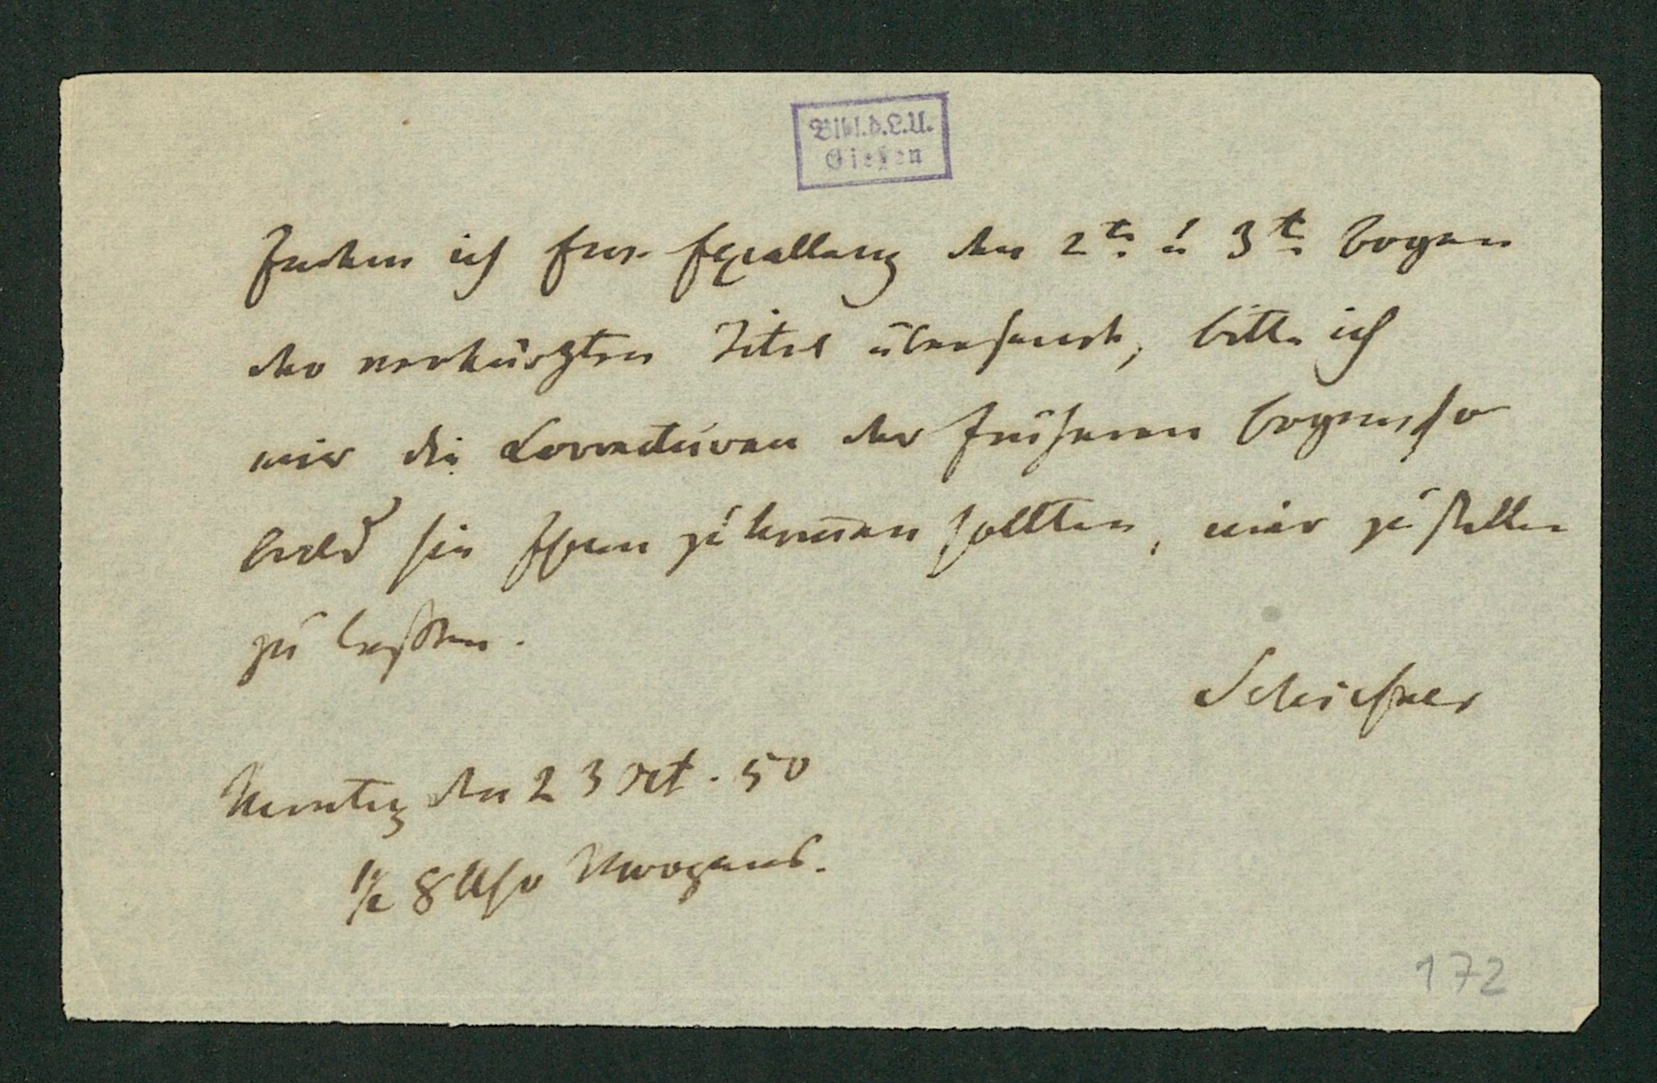 Bibl.d.L.U.
Gießen
Indem ich Eurer Excellenz den 2ten u 3ten Bogen
den verkürzten Titel übersende, bitte ich
mir die Correcturen der früheren Bogen, so
bald sie Ihnen zukommen sollten, mir zustellen
zu lassen.
Schiefner
Montag den 23 Oct. 50
1/2 8 Uhr Morgens.
172